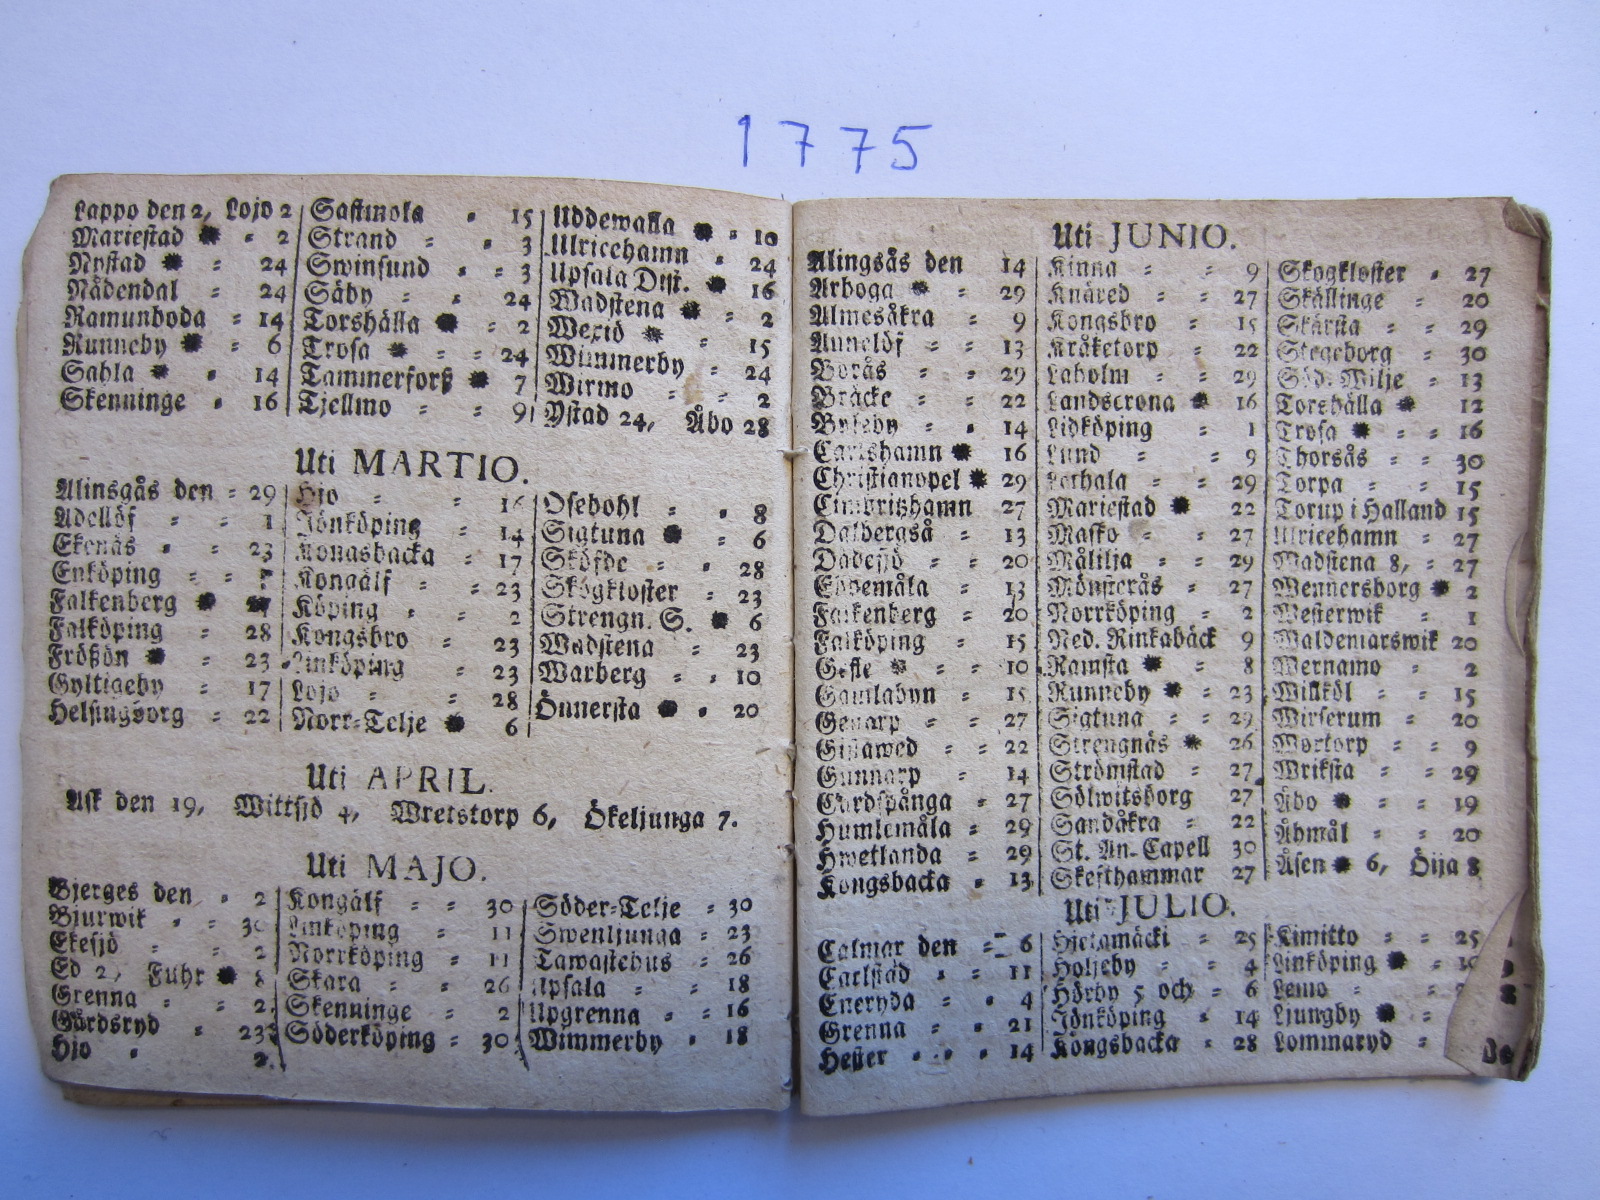 1775
Lappo den 2, Lojo 2
Mariestad * = 2
Nystad * = 24
Nådendal = 24
Ramunboda = 14
Runneby * = 6
Sahla * = 14
Skenninge = 16
Sastmola = 15
Strand = = 3
Swinsund = = 3
Säby = = 24
Torshälla * = 2
Trosa * = = 24
Tammerforß * 7
Tjellmo = = 9
Uddewalla * = 10
Ulricehamn = 24
Upsala Dist. * 16
Wadstena * = 2
Wexiö * = 15
Wimmerby = 24
Wirmo = = 2
Ystad 24, Åbo 28
Uti MARTIO.
Alinsgås den = 29
Adellöf = = 1
Ekenäs = = 23
Enköping = =
Falkenberg *
Falköping = 28
Frößön * = 23
Gyltigeby = 17
Helsingborg = 22
Hjo = = 16
Jönköping = 14
Kongsbacka = 17
Kongälf = = 23
Köping = = 2
Kongsbro = 23
Linköping = 23
Lojo = = 28
Norr-Telje * 6
Osebohl = = 8
Sigtuna * = 6
Sköfde = = 28
Skògkloster = 23
Strengn. S. * 6
Wadstena = 23
Warberg = = 10
Önnersta * = 20
Uti APRIL.
Ask den 19, Wittsjö 4, Wretstorp 6, Ökeljunga 7.
Uti MAJO.
Bjerges den = 2
Bjurwik = = 30
Ekesjö = = 2
Ed 2, Fuhr * 8
Grenna = = 2
Gårdsryd = 23
Hjo = 2
Kongälf = = 30
Linköping = 11
Norrköping = 11
Skara = = 26
Skenninge = 2
Söderköping = 30
Söder-Telje = 30
Swenljunga = 23
Tawastehus = 26
Upsala = = 18
Upgrenna = = 16
Wimmerby = 18
Uti JUNIO.
Alingsås den 14
Arboga * = 29
Almesåkra = 9
Annelöf = = 13
Borås = = 29
Bräcke = = 22
Byseby = = 14
Carlshamn * 16
Christianopel * 29
Cimbritzhamn 27
Dalbergså = 13
Dädesjö = = 20
Eppemåla = 13
Falkenberg = 20
Falköping = 15
Gefle * = = 10
Gamlabyn = 15
Genarp = = 27
Gislawed = = 22
Gunnarp = 14
Gårdspånga = 27
Humlemåla = 29
Hwetlanda = 29
Kongsbacka = 13
Kinna = = 9
Knäred = = 27
Kongsbro = 15
Kråketorp = 22
Laholm = = 29
Landscrona * 16
Lidköping = 1
Lund = = 9
Lethala = = 29
Mariestad * 22
Masko = = 27
Målilja = = 29
Mönsterås = 27
Norrköping = 2
Ned. Rinkabäck 9
Ramsta * = 8
Runneby * = 23
Sigtuna = = 29
Strengnäs * 26
Strömstad = 27
Sölwitsborg 27
Sandåkra = 22
St. An-Capell 30
Skefthammar 27
Skogkloster = 27
Skällinge = 20
Skärsta = = 29
Stegeborg = 30
Söd. Wilje = 13
Torshälla * 12
Trosa * = = 16
Thorsås = = 30
Torpa = = 15
Torup i Halland 15
Ulricehamn = 27
Wadstena 8, = 27
Wennersborg * 2
Westerwik = 1
Waldemarswik 20
Wernamo = 2
Willköl = = 15
Wirserum = 20
Wortorp = = 9
Wriksta = = 29
Åbo * = = 19
Åhmål = = 20
Åsen * 6, Öija 8
Uti JULIO.
Calmar den = 6
Carlstad = = 11
Eneryda = = 4
Grenna = = 21
Hester = = = 14
Hjelamäcki = 25
Holjeby = = 4
Hörby 5 och = 6
Jönköping = 14
Kongsbacka = 28
Kimitto = = 25
Linköping *
Lemo = =
Ljungby * =
Lommaryd =